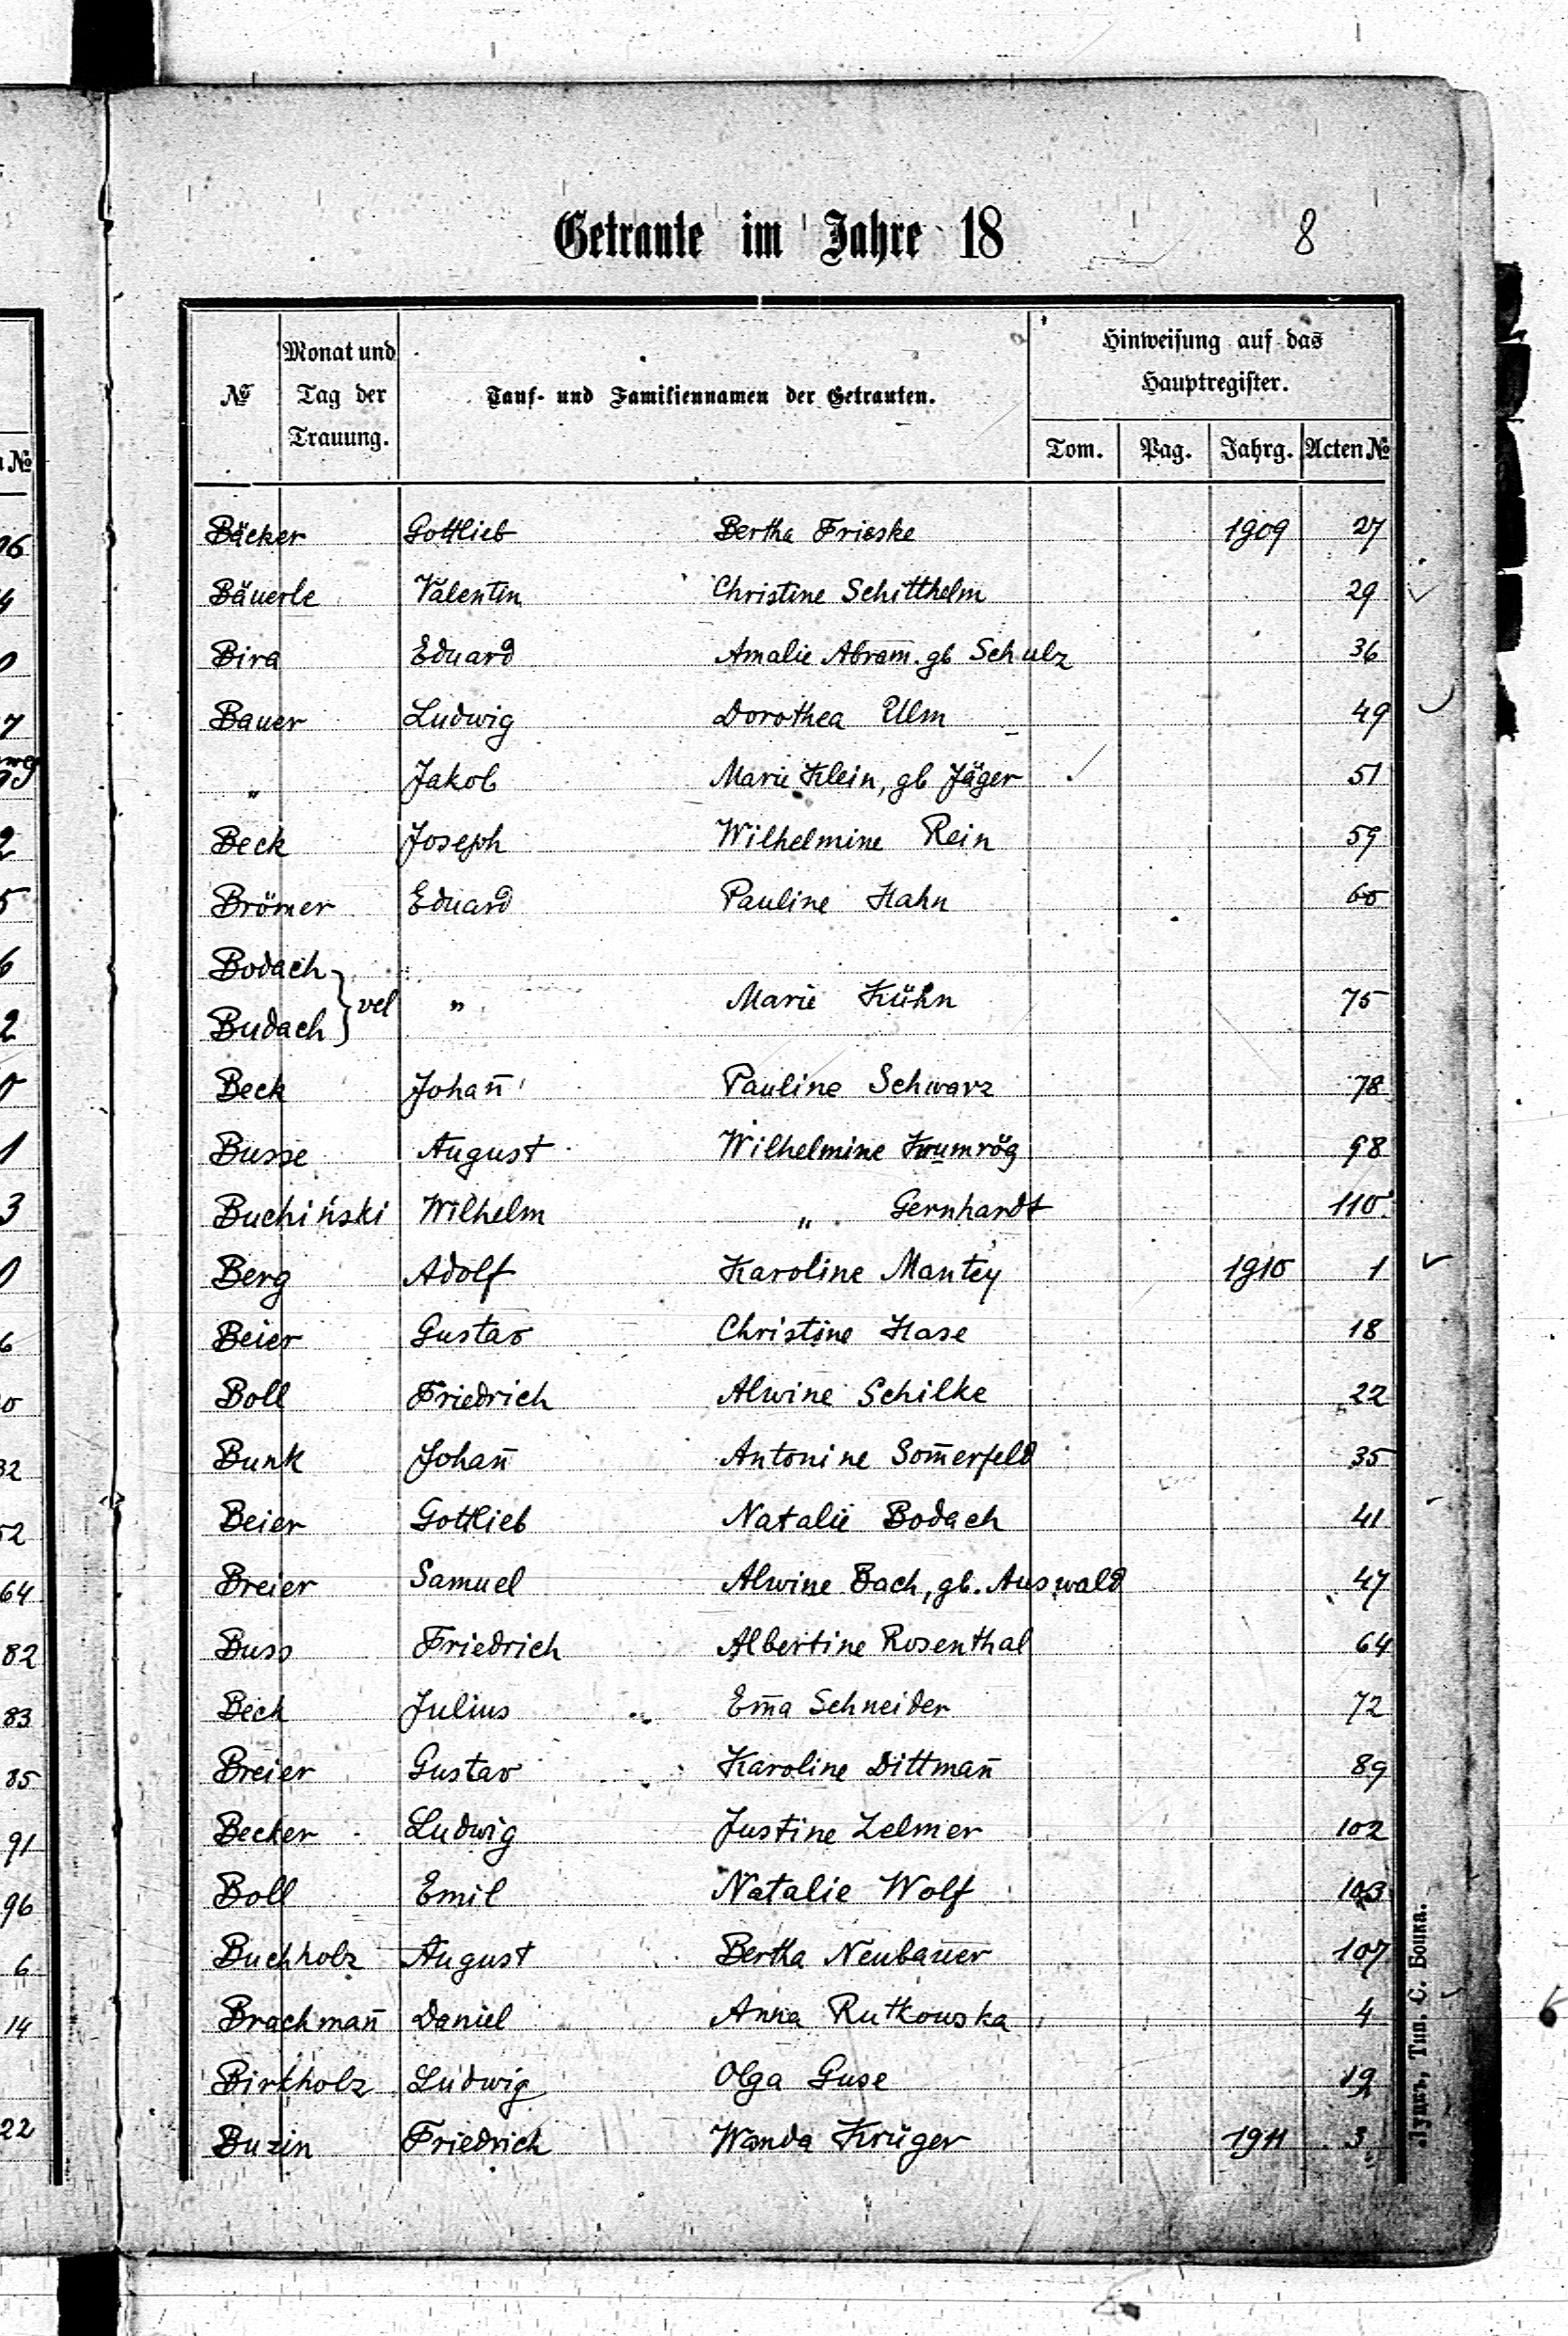 Getraute im Jahre 18 8
№ Monat und Tag der Trauung. Tauf- und Familiennamen der Getrauten. Hinweisung auf das Hauptregister.
Tom. Pag. Jahrg. Acten №
Bäcker Gottlieb Bertha Frieske 1909 27
Bäuerle Valentin Christine Schitthelm 29
Bira Eduard Amalie Abram. gb Schulz 36
Bauer Ludwig Dorothea Ulm 49
" Jakob Marie Klein, gb Jäger 51
Beck Joseph Wilhelmine Rein 59
Brömer Eduard Pauline Hahn 60
Bodach
} vel " Marie Kühn 75
Budach
Beck Johan̄ Pauline Schwarz 78
Busse August Wilhelmine Krumrög 98
Buchiński Wilhelm " Gernhardt 110
Berg Adolf Karoline Mantey 1910 1
Beier Gustav Christine Hase 18
Boll Friedrich Alwine Schilke 22
Bunk Johan̄ Antonine Som̄erfeld 35
Beier Gottlieb Natalie Bodach 41
Breier Samuel Alwine Bach, gb. Auswald 47
Buss Friedrich Albertine Rosenthal 64
Beck Julius Em̄a Schneider 72
Breier Gustav Karoline Dittman̄ 89
Becker Ludwig Justine Zelmer 102
Boll Emil Natalie Wolf 103
Buchholz August Bertha Neubauer 107
Brachman̄ Daniel Anna Rutkowska 4
Birkholz Ludwig Olga Guse 19
Buzin Friedrich Wanda Krüger 1911 3
Луцкъ, Тип. С. Бонка.